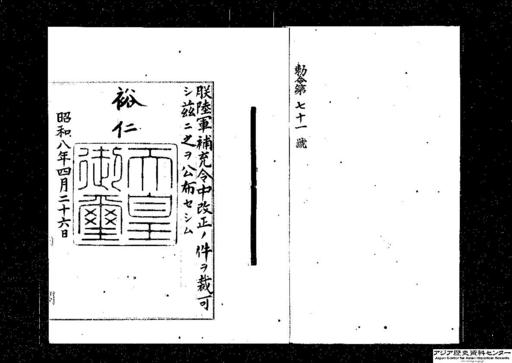 勅令第七十一號
朕陸軍補充令中改正ノ件ヲ裁可
シ茲ニ之ヲ公布セシム
裕仁
天皇
御璽
昭和八年四月二十六日
アジア歴史資料センター
Japan Center for Asian Historical Records